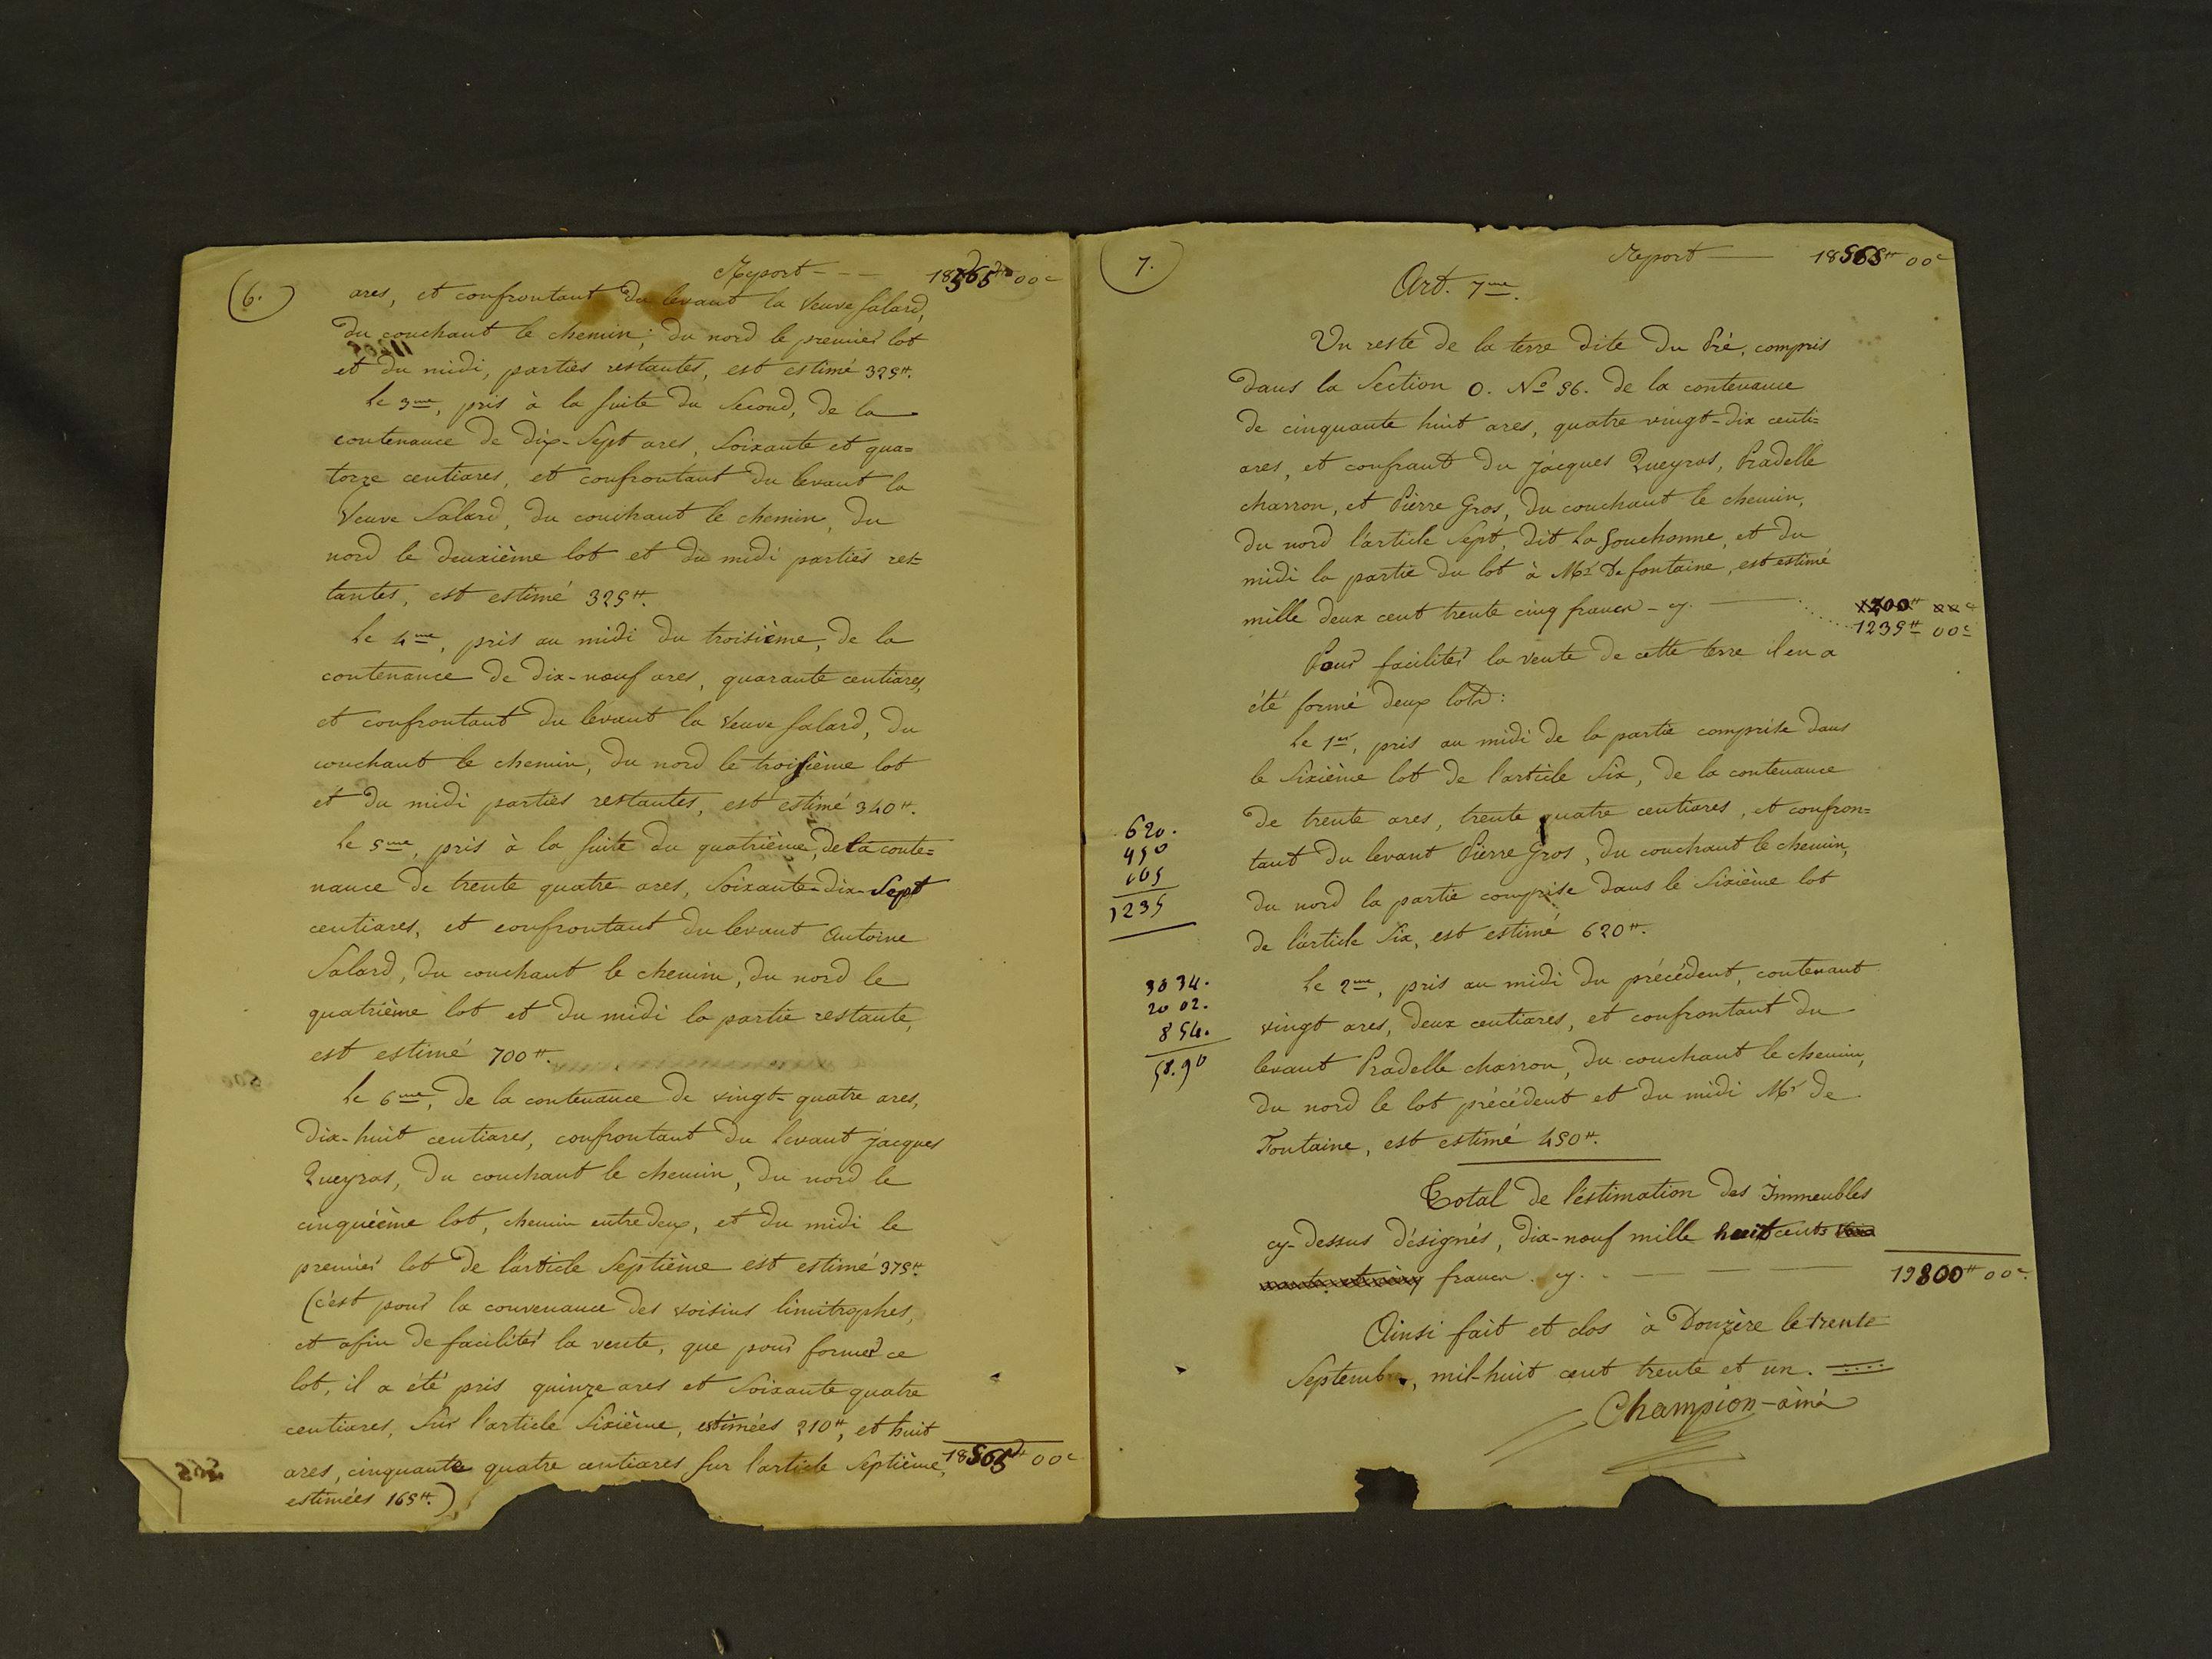 6.
Report - - - 18565# 00c
ares, et confrontant du levant la Veuve Salard,
du couchant le chemin; du nord le premier lot
et du midi, parties restantes, est estimé 325#.
Le 3me, pris à la suite du Second, de la
contenance de dix-Sept ares, Soixante et qua=
torze centiares, et confrontant du levant la
Veuve Salard, du couchant le chemin, du
nord le deuxième lot et du midi parties res=
tantes, est estimé 325#.
Le 4me, pris au midi du troisième, de la
contenance de dix-neuf ares, quarante centiares,
et confrontant du levant la Veuve Salard, du
couchant le chemin, du nord le troisième lot
et du midi parties restantes, est estimé 340#.
Le 5me, pris à la suite du quatrième, de la conte=
nance de trente quatre ares, Soixante-dix-Sept
centiares, et confrontant du levant Antoine
Salard, du couchant le chemin, du nord le
quatrième lot et du midi la partie restante,
est estimé 700#.
Le 6me, de la contenance de vingt-quatre ares,
dix-huit centiares, confrontant du levant Jacques
Queyras, du couchant le chemin, du nord le
cinquième lot, chemin entre deux, et du midi le
premier lot de l'article Septième est estimé 375#.
(c'est pour la convenance des voisins limitrophes,
et afin de faciliter la vente, que pour former ce
lot, il a été pris quinze ares et Soixante quatre
centiares, Sur l'article Sixième, estimées 210#, et huit
ares, cinquante quatre centiares sur l'article Septième,
estimées 165#.)
18565# 00c
7.
Report — 18565# 00c
Art. 7me.
Un reste de la terre dite du Pré, compris
dans la Section O. No 96. de la contenance
de cinquante huit ares, quatre vingt-dix centi=
ares, et confrant du Jacques Queyras, Pradelle
charron, et Pierre Gros, du couchant le chemin,
du nord l'article Sept, dit La Souchonne, et du
midi la partie du lot à Mr De fontaine, est estimé
mille deux cent trente cinq francs - cy. — 1235# 00c
Pour faciliter la vente de cette terre il en a
été formé deux lots:
Le 1er, pris au midi de la partie comprise dans
le Sixième lot de l'article Six, de la contenance
de trente ares, trente quatre centiares, et confron=
tant du levant Pierre Gros, du couchant le chemin,
du nord la partie comprise dans le Sixième lot
de l'article Six, est estimé 620#.
Le 2me, pris au midi du précédent, contenant
vingt ares, deux centiares, et confrontant du
levant Pradelle charron, du couchant le chemin,
du nord le lot précédent et du midi Mr de
Fontaine, est estimé 450#.
620.
450
165
1235
3034.
2002.
854.
58.90
Total de l'éstimation des Immeubles
cy-dessus désignés, dix-neuf mille huit cents
francs. cy. — 19800# 00c.
Ainsi fait et clos à Donzère le trente
Septembre, mil-huit cent trente et un.
Champion-ainé